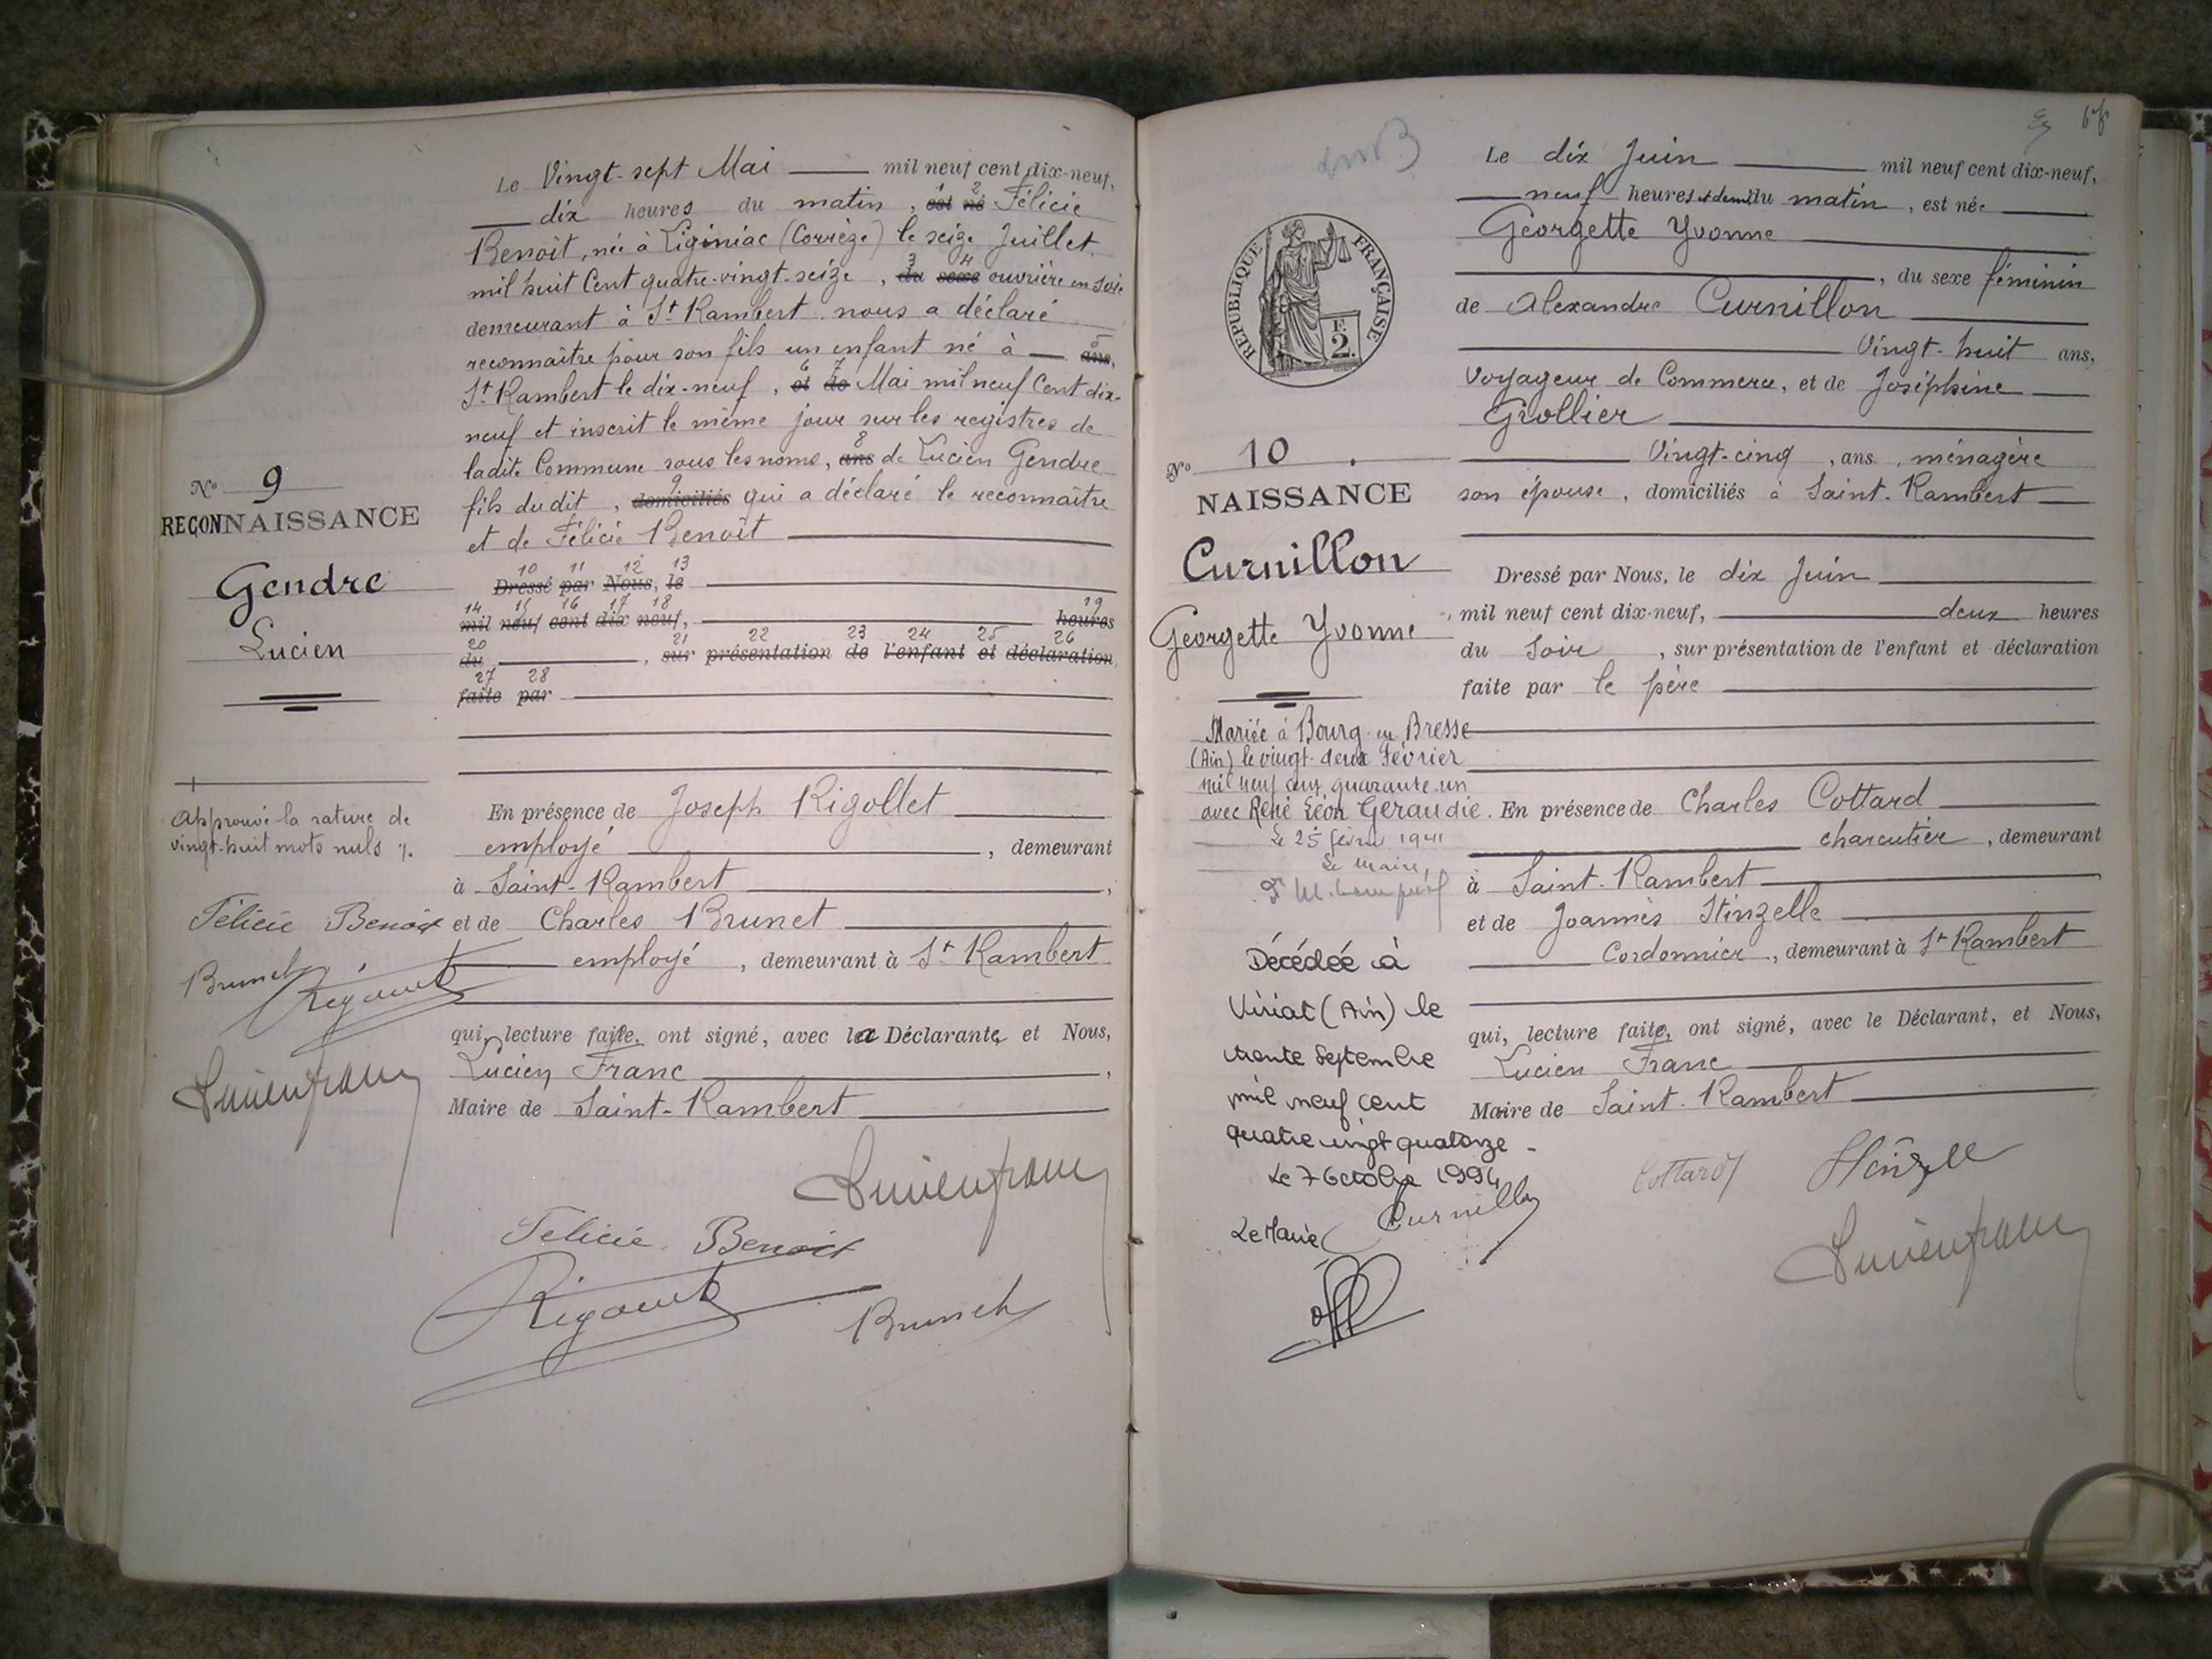 Le Vingt-sept Mai mil neuf cent dix-neuf,
dix heures du matin, est né 2 Félicie
Benoît, née à Liginiac (Corrèze) le seize Juillet
mil huit Cent quatre-vingt-seize, 3 du 4 sexe ouvrière en soie
demeurant à St Rambert nous a déclaré
reconnaître pour son fils un enfant né à 5 ans,
St Rambert le dix-neuf, 6 et 7 de Mai mil neuf Cent dix-
neuf et inscrit le même jour sur les registres de
ladite Commune sous les noms, 8 ans de Lucien Gendre
fils du dit, 9 domiciliés qui a déclaré le reconnaître
et de Félicie Benoît
10 11 12 13
Dressé par Nous, le
14 15 16 17 18 19
mil neuf cent dix neuf, heures
20 21 22 23 24 25 26
du, sur présentation de l'enfant et déclaration
27 28
faite par
No 9
RECONNAISSANCE
Gendre
Lucien
Approuvé la rature de
vingt-huit mots nuls
En présence de Joseph Rigollet
employé, demeurant
à Saint-Rambert,
et de Charles Brunet
employé, demeurant à St Rambert
qui, lecture faite, ont signé, avec la Déclarante, et Nous,
Lucien Franc,
Maire de Saint-Rambert
Félicie Benoit
Brunet
Lucien Franc
Lucien Franc
Félicie Benoit
Brunet
Le dix Juin mil neuf cent dix-neuf,
neuf heures et demi du matin, est née
Georgette Yvonne
, du sexe féminin
de Alexandre Curnillon
Vingt-huit ans,
Voyageur de Commerce, et de Joséphine
Grollier
Vingt-cinq, ans, ménagère
son épouse, domiciliés à Saint-Rambert
Dressé par Nous, le dix Juin
mil neuf cent dix-neuf, deux heures
du Soir, sur présentation de l'enfant et déclaration
faite par le père
RÉPUBLIQUE FRANÇAISE
F.
2.
No 10.
NAISSANCE
Curnillon
Georgette Yvonne
Mariée à Bourg-en-Bresse
(Ain) le vingt-deux Février
mil neuf cent quarante-un
avec René Léon Geraudie.
Le 25 février 1941
Le Maire,
Décédée à
Viriat (Ain) le
trente Septembre
mil neuf cent
quatre vingt quatorze -
Le 7 Octobre 1994
Le Maire
En présence de Charles Cottard
charcutier, demeurant
à Saint-Rambert
et de Joannès Stinzelle
Cordonnier, demeurant à St Rambert
qui, lecture faite, ont signé, avec le Déclarant, et Nous,
Lucien Franc
Maire de Saint-Rambert
Cottard
Curnillon
Lucien Franc